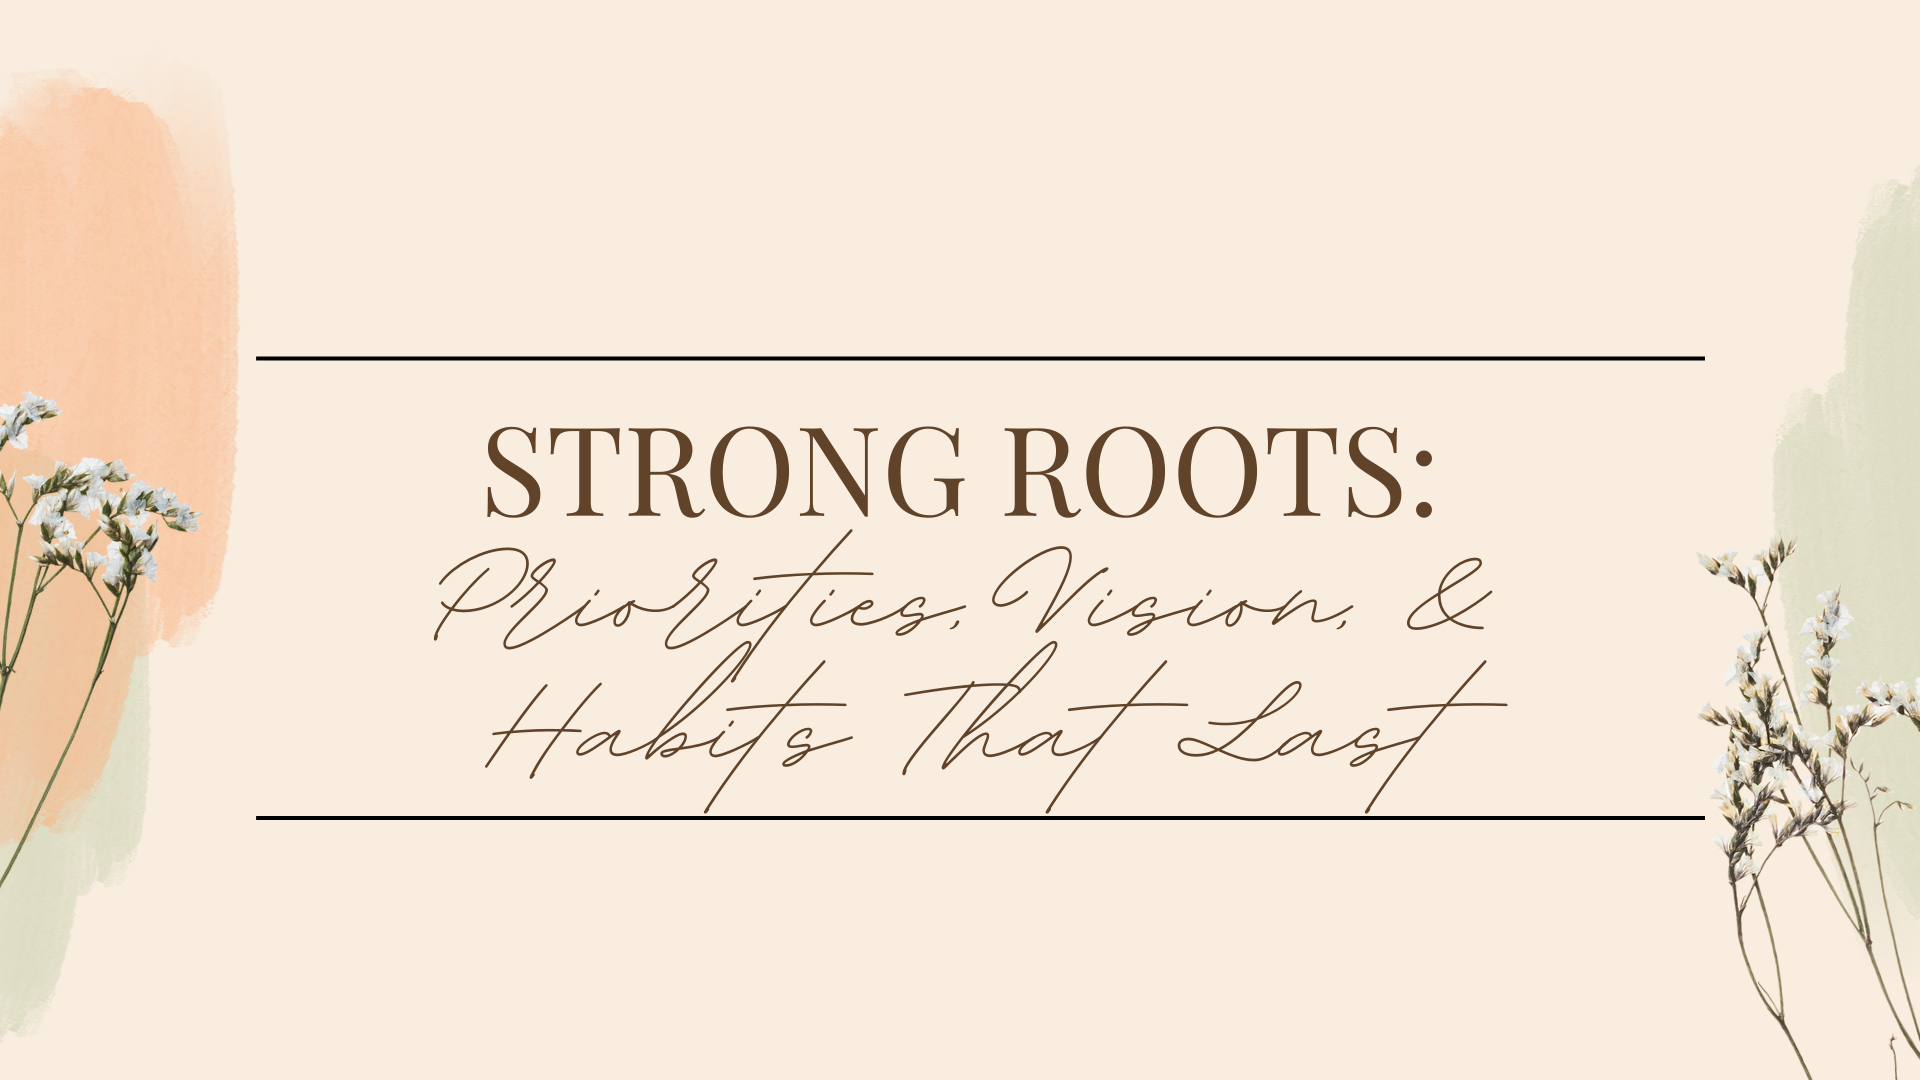 STRONG ROOTS:
Priorities, Vision, &
Habits That Last